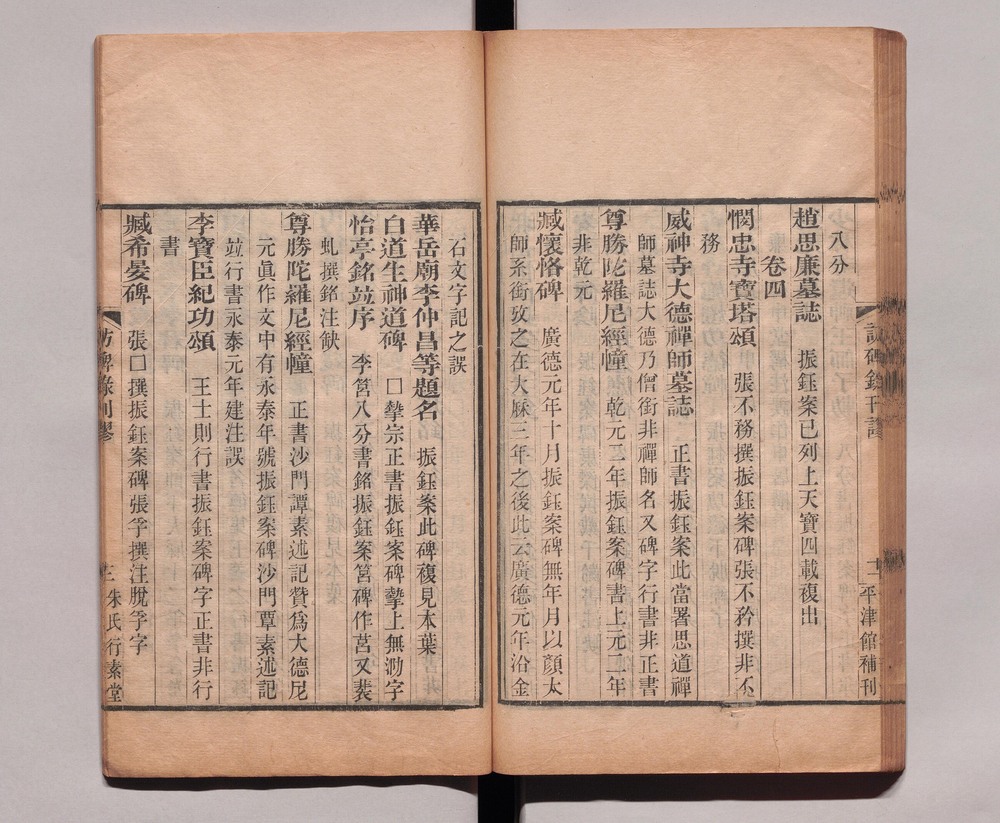 八分
趙思廉墓誌　振鈺案已列上天寶四載複出
卷四
憫忠寺寶塔頌　張不務撰振鈺案碑張不矜撰非不
務
威神寺大德禪師墓誌　正書振鈺案此當署思道禪
師墓誌大德乃僧銜非禪師名又碑字行書非正書
尊勝陀羅尼經幢　乾元三年振鈺案碑書上元二年
非乾元
臧懷恪碑　廣德元年十月振鈺案碑無年月以顏太
師系銜攷之在大厤三年之後此云廣德元年沿金
訪碑錄刊謬
二
平津館補刊
石文字記之誤
華岳廟李仲昌等題名　振鈺案此碑複見本葉
白道生神道碑　口摯宗正書振鈺案碑摯上無泐字
怡亭銘竝序　李筥八分書銘振鈺案筥碑作莒又裴
虬撰銘注缺
尊勝陀羅尼經幢　正書沙門譚素述記贊爲大德尼
元眞作文中有永泰年號振鈺案碑沙門覃素述記
竝行書永泰元年建注誤
李寶臣紀功頌　王士則行書振鈺案碑字正書非行
書
臧希晏碑　張口撰振鈺案碑張孚撰注脫孚字
訪碑錄刊謬
三
朱氏行素堂